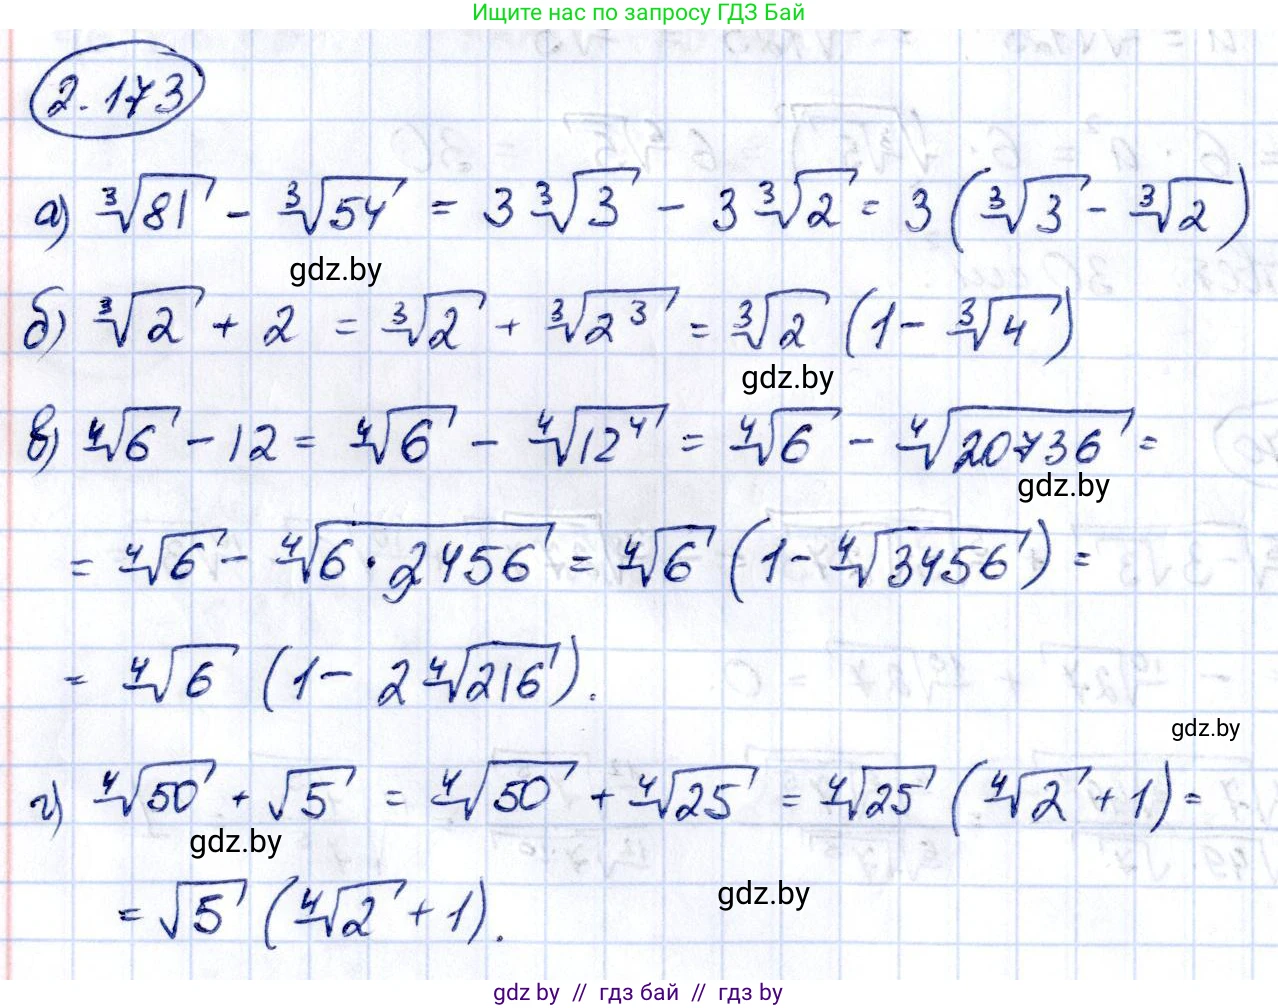 Ищите нас по запросу ГДЗ Бай
2.173
а) ∛81 - ∛54 = 3∛3 - 3∛2 = 3(∛3 - ∛2)
gdz.by
б) ∛2 + 2 = ∛2 + ∛2³ = ∛2 (1 - ∛4)
gdz.by
в) ∜6 - 12 = ∜6 - ∜12⁴ = ∜6 - ∜20736 =
gdz.by
= ∜6 - ∜6·2456 = ∜6 (1 - ∜3456) =
= ∜6 (1 - 2∜216).
gdz.by
г) ∜50 + √5 = ∜50 + ∜25 = ∜25 (∜2 + 1) =
gdz.by
= √5 (∜2 + 1).
gdz.by
gdz by // гдз бай // гдз by